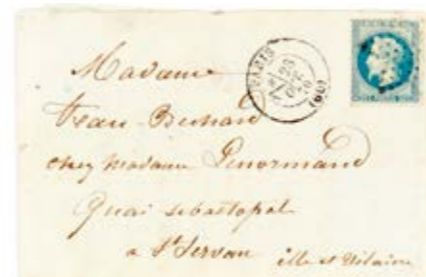 PARIS (60)
Madame
chez Madame Lenormand
Quai Sebastopol
a St Servan
ille et Vilaine